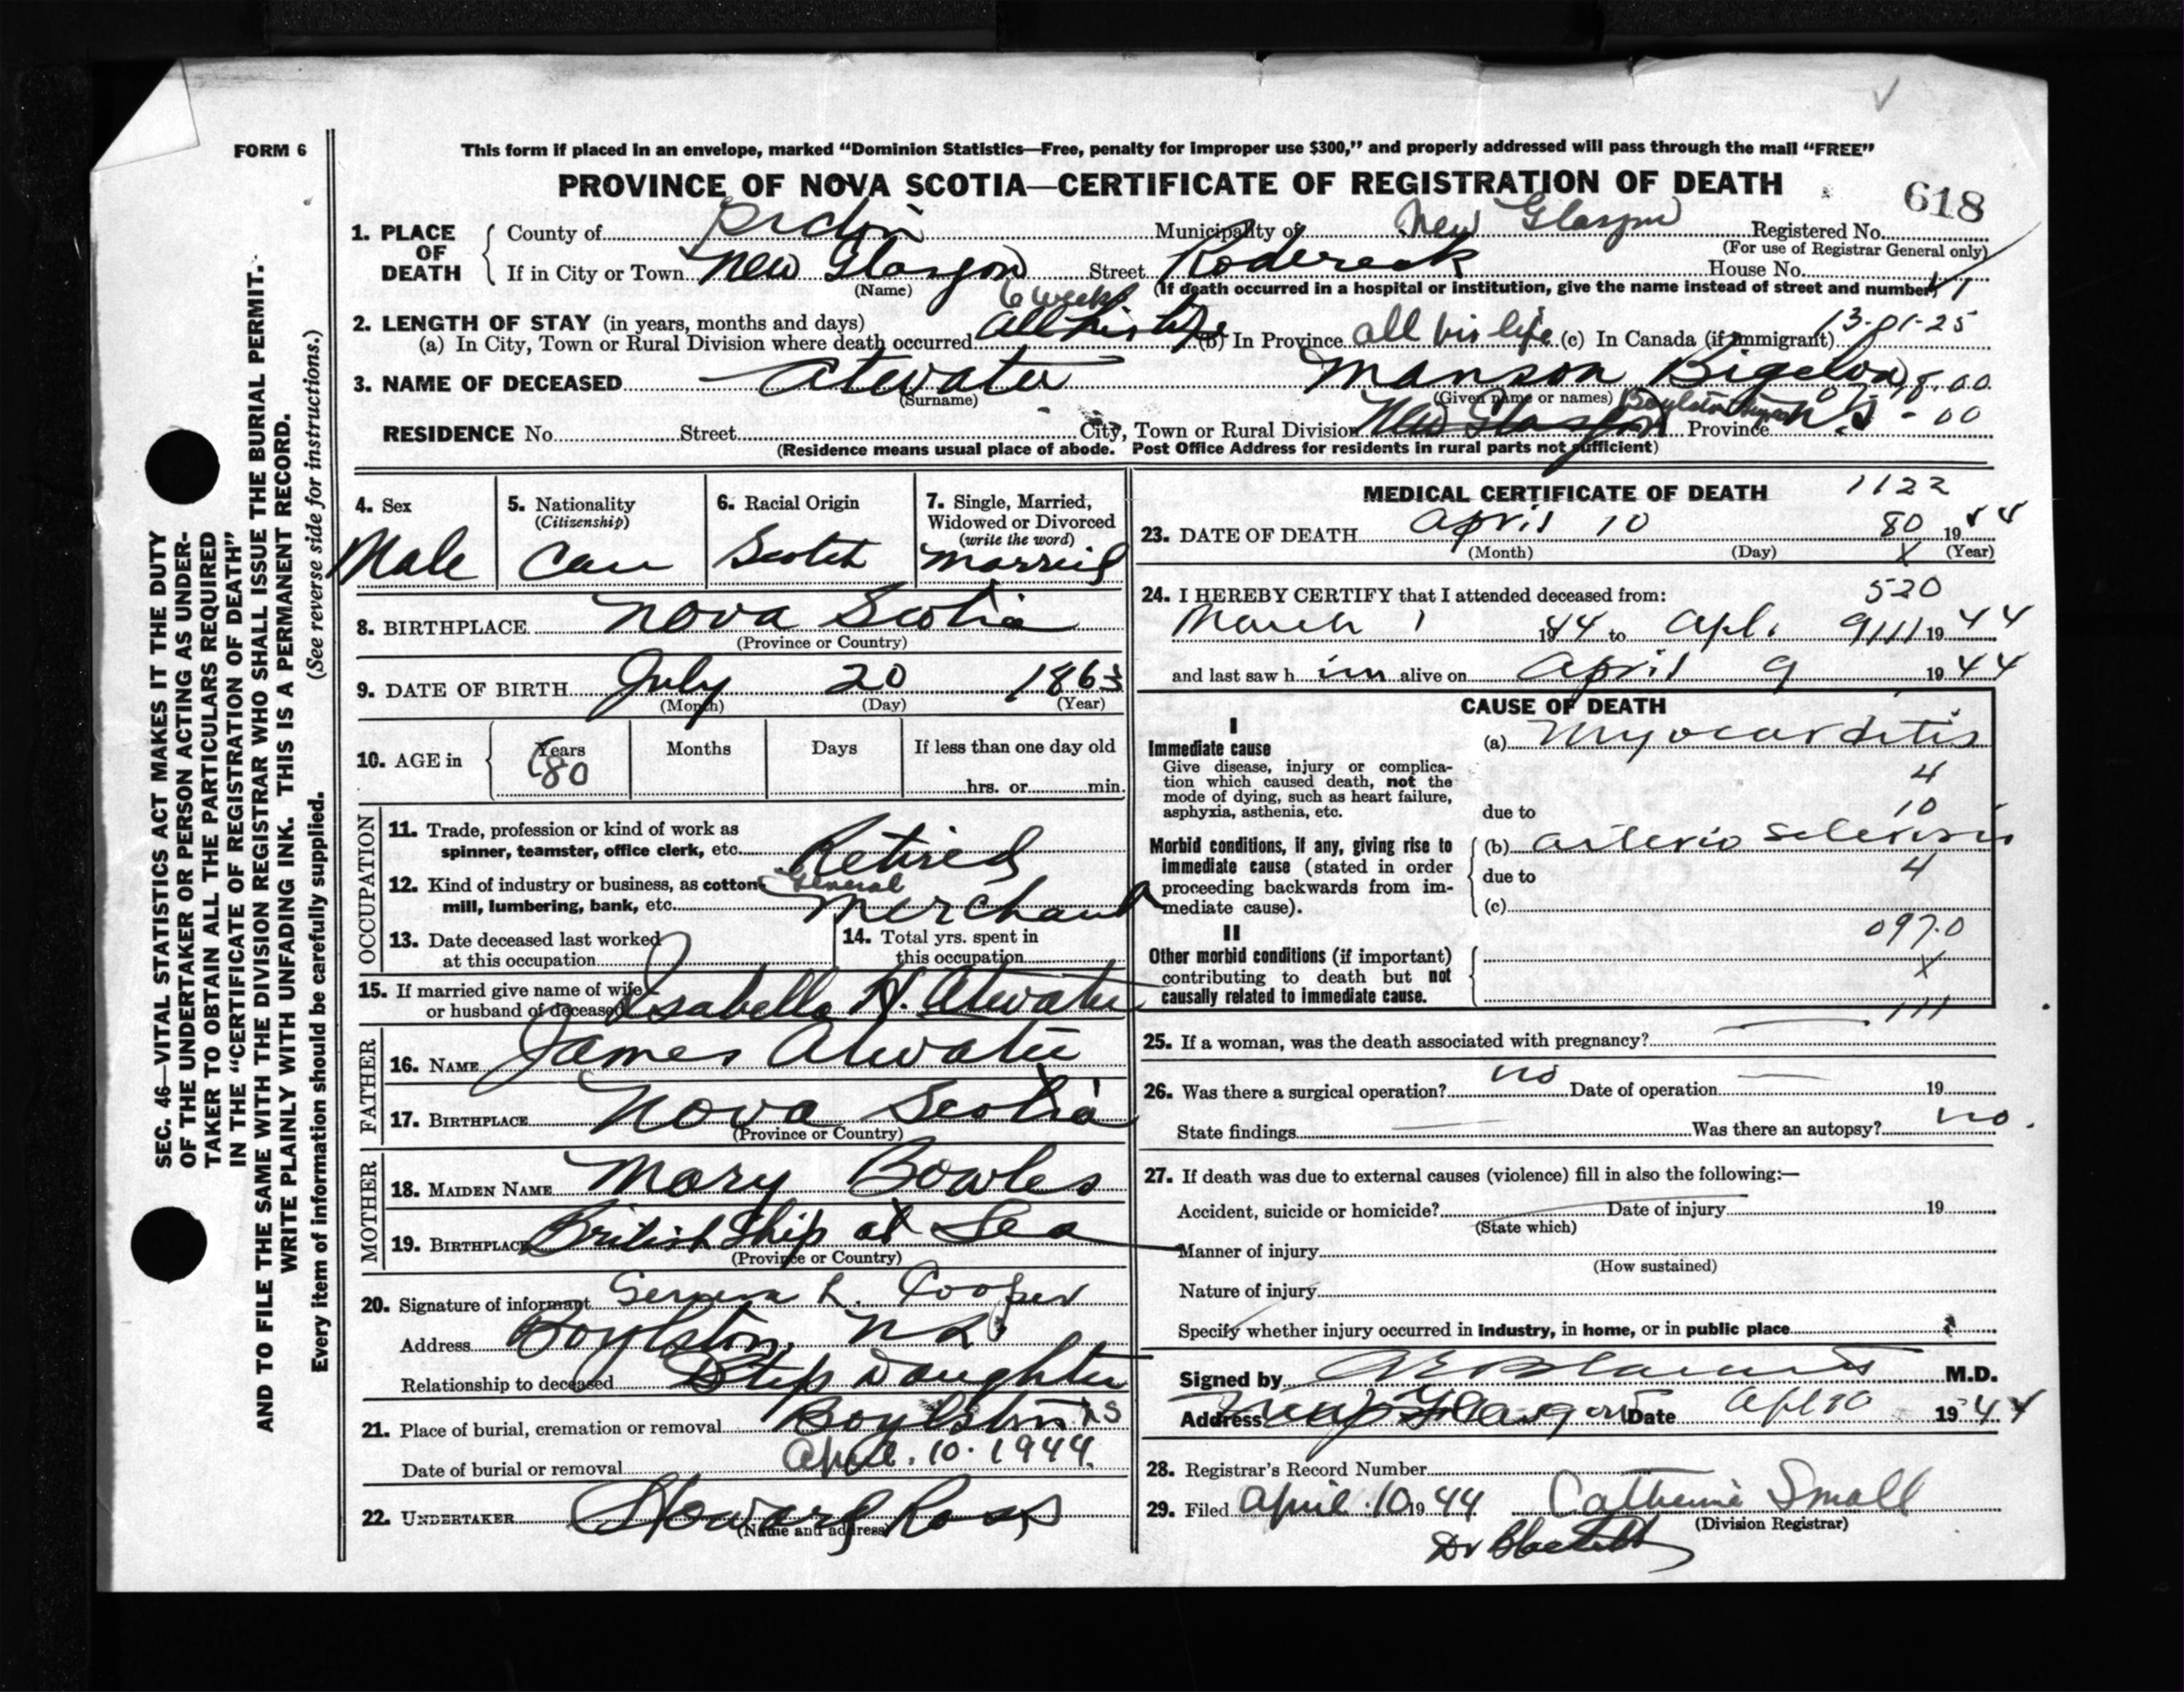 FORM 6
This form if placed in an envelope, marked "Dominion Statistics—Free, penalty for improper use $300," and properly addressed will pass through the mail "FREE"
PROVINCE OF NOVA SCOTIA—CERTIFICATE OF REGISTRATION OF DEATH
618
1. PLACE OF DEATH
County of Pictou Municipality of New Glasgow Registered No.
(For use of Registrar General only)
If in City or Town New Glasgow Street Rodereck House No.
(Name) (If death occurred in a hospital or institution, give the name instead of street and number)
6 weeks
2. LENGTH OF STAY (in years, months and days)
(a) In City, Town or Rural Division where death occurred all his life (b) In Province all his life (c) In Canada (if immigrant) 13-01-25
3. NAME OF DECEASED Atwater Manson Bigelow
(Surname) (Given name or names)
RESIDENCE No. Street City, Town or Rural Division New Glasgow Boylston Province N.S - 00
(Residence means usual place of abode. Post Office Address for residents in rural parts not sufficient)
4. Sex Male
5. Nationality (Citizenship) Can
6. Racial Origin Scotch
7. Single, Married, Widowed or Divorced (write the word) Married
8. BIRTHPLACE Nova Scotia
(Province or Country)
9. DATE OF BIRTH July 20 1863
(Month) (Day) (Year)
10. AGE in Years Months Days If less than one day old
80 hrs. or min.
OCCUPATION
11. Trade, profession or kind of work as
spinner, teamster, office clerk, etc. Retired
12. Kind of industry or business, as cotton General
mill, lumbering, bank, etc. Merchant
13. Date deceased last worked
at this occupation
14. Total yrs. spent in
this occupation
15. If married give name of wife
or husband of deceased Isabella H. Atwater
FATHER
16. NAME James Atwater
17. BIRTHPLACE Nova Scotia
(Province or Country)
MOTHER
18. MAIDEN NAME Mary Bowles
19. BIRTHPLACE British Ship at Sea
(Province or Country)
20. Signature of informant L. Cooper
Address Boylston, N.S.
Relationship to deceased Step Daughter
21. Place of burial, cremation or removal Boylston NS
Date of burial or removal April. 10. 1944.
22. UNDERTAKER Howard Ross
(Name and address)
MEDICAL CERTIFICATE OF DEATH 1122
23. DATE OF DEATH April 10 80 1944
(Month) (Day) X (Year)
24. I HEREBY CERTIFY that I attended deceased from: 520
March 1 1944 to Apl. 9 1944
and last saw h im alive on April 9 1944
CAUSE OF DEATH
I
Immediate cause
Give disease, injury or complica-
tion which caused death, not the
mode of dying, such as heart failure,
asphyxia, asthenia, etc.
(a) Myocarditis
4
10
due to
Morbid conditions, if any, giving rise to
immediate cause (stated in order
proceeding backwards from im-
mediate cause).
(b) Arterio Sclerosis
due to 4
(c)
097.0
II
Other morbid conditions (if important)
contributing to death but not
causally related to immediate cause.
X
111
25. If a woman, was the death associated with pregnancy?
26. Was there a surgical operation? no Date of operation 19
State findings Was there an autopsy? no.
27. If death was due to external causes (violence) fill in also the following:—
Accident, suicide or homicide? Date of injury 19
(State which)
Manner of injury
(How sustained)
Nature of injury
Specify whether injury occurred in industry, in home, or in public place
Signed by M.D.
Address New Glasgow Date Apl 10 1944
28. Registrar's Record Number
29. Filed April. 10 1944 Catherine Small
(Division Registrar)
Dr Blackett
SEC. 46—VITAL STATISTICS ACT MAKES IT THE DUTY
OF THE UNDERTAKER OR PERSON ACTING AS UNDER-
TAKER TO OBTAIN ALL THE PARTICULARS REQUIRED
IN THE "CERTIFICATE OF REGISTRATION OF DEATH"
AND TO FILE THE SAME WITH THE DIVISION REGISTRAR WHO SHALL ISSUE THE BURIAL PERMIT.
WRITE PLAINLY WITH UNFADING INK. THIS IS A PERMANENT RECORD.
Every item of information should be carefully supplied. (See reverse side for instructions.)